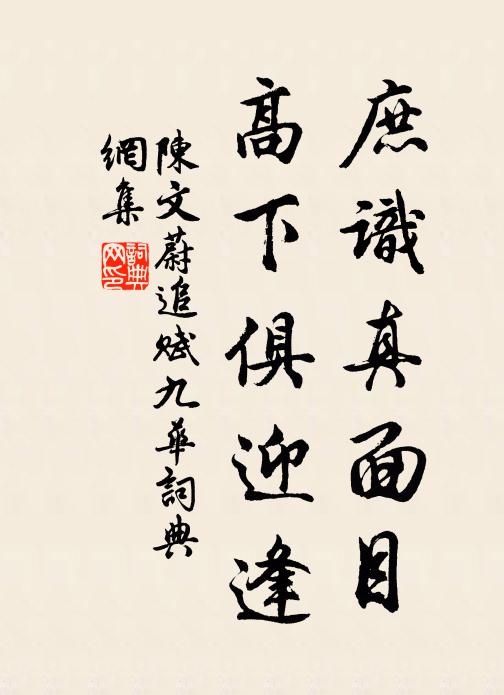 庶識真面目
高下俱迎逢
陳文蔚追賦九華詞典
網集
詞典
网印